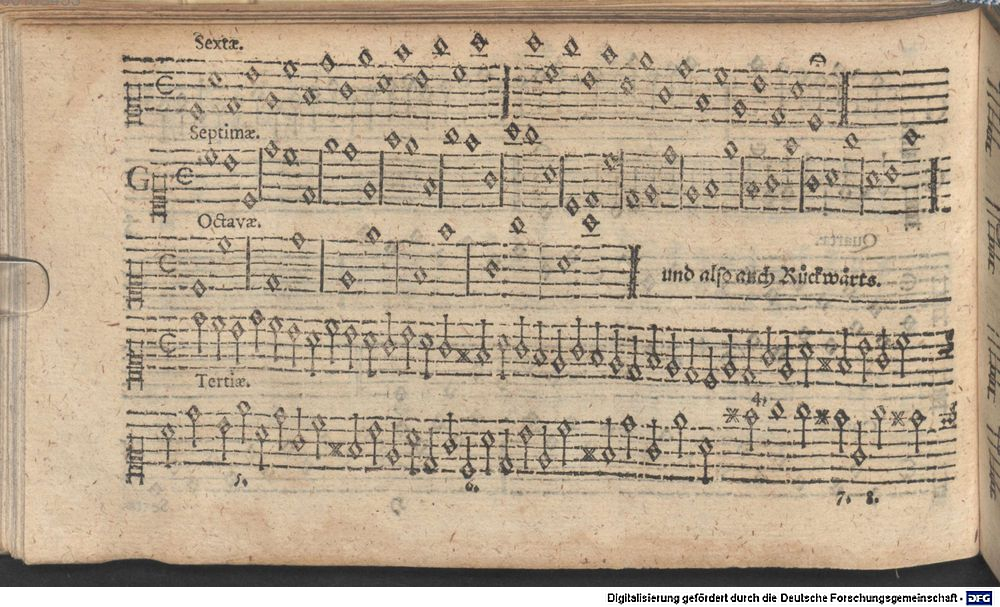 Sextæ.
Septimæ.
G
Octavæ.
und alſo auch Ruͤckwaͤrts.
Tertiæ.
4.
5.
6.
7. 8.
Digitalisierung gefördert durch die Deutsche Forschungsgemeinschaft - DFG